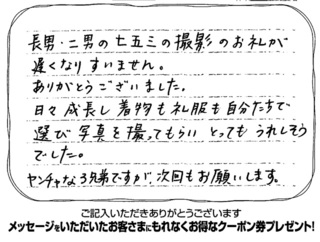 長男・二男の七五三の撮影のお礼が
遅くなりすいません。
ありがとうございました。
日々成長し着物も礼服も自分たちで
選び写真を撮ってもらいとってもうれしそう
でした。
ヤンチャな3兄弟ですが、次回もお願いします。
ご記入いただきありがとうございます
メッセージをいただいたお客さまにもれなくお得なクーポン券プレゼント!